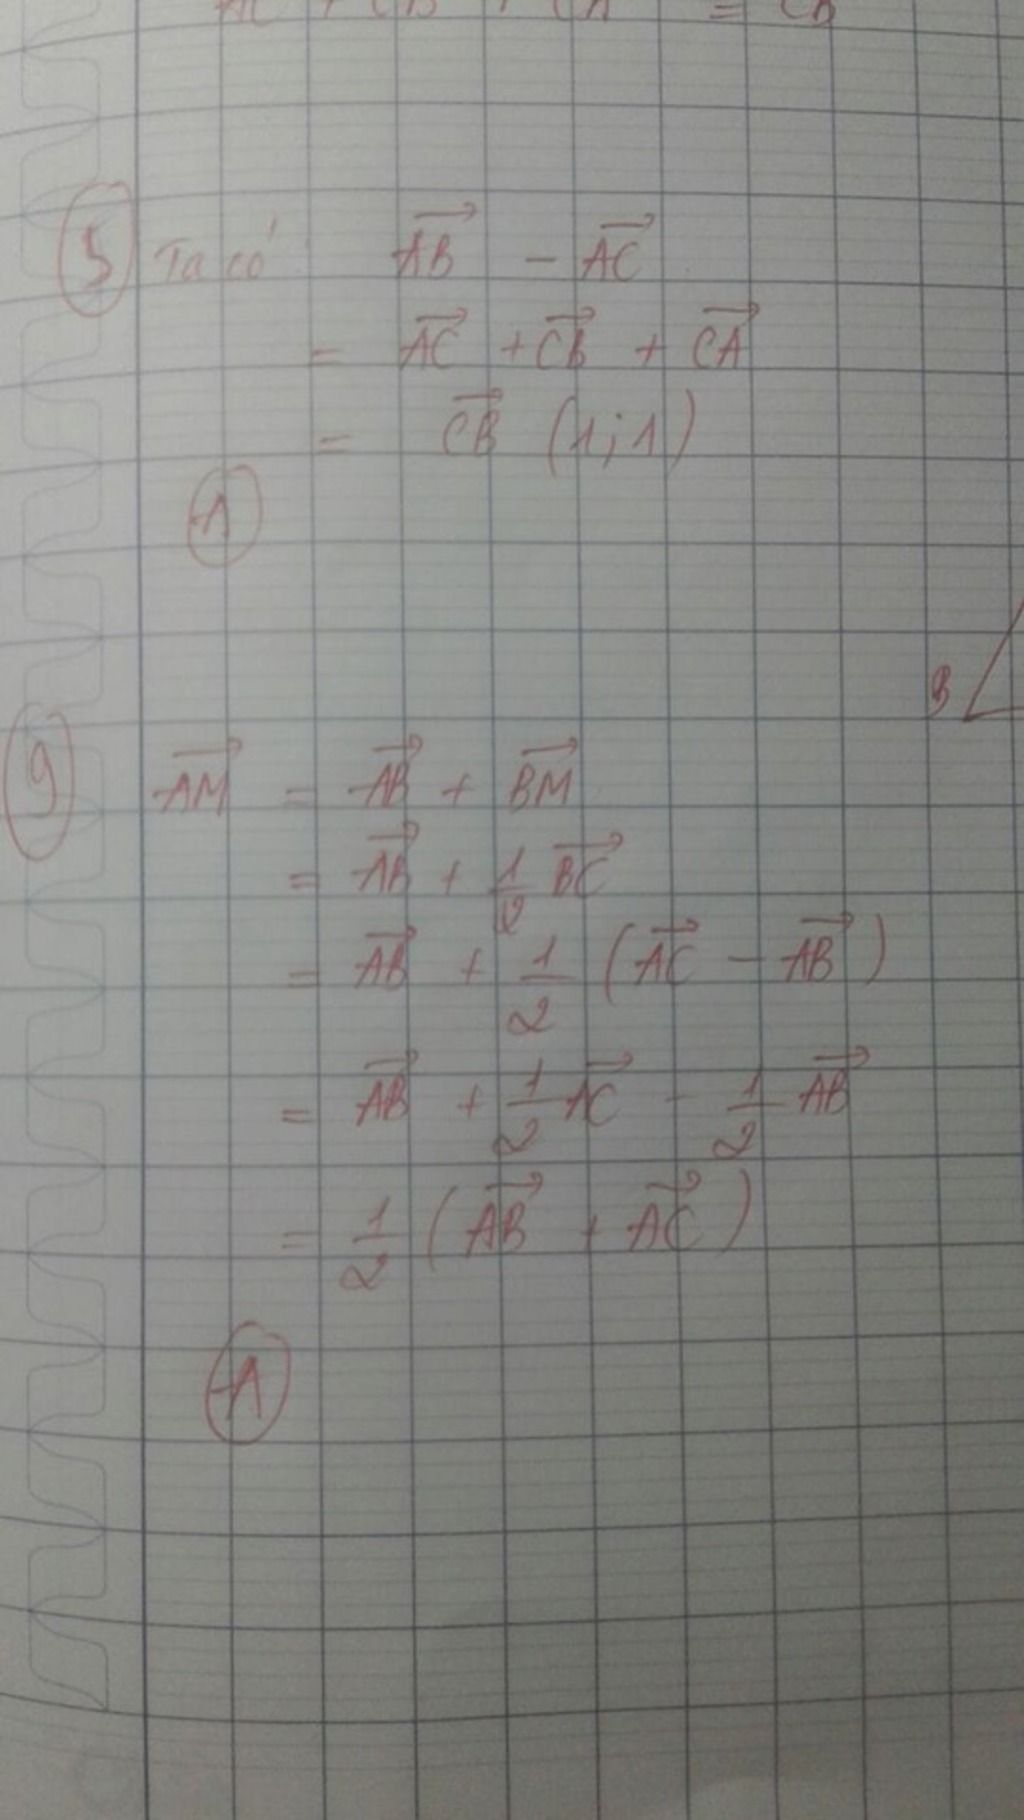 5 Ta có \overrightarrow{AB} - \overrightarrow{AC}
= \overrightarrow{AC} + \overrightarrow{CB} + \overrightarrow{CA}
= \overrightarrow{CB} (1;1)
A
B
9 \overrightarrow{AM} = \overrightarrow{AB} + \overrightarrow{BM}
= \overrightarrow{AB} + \frac{1}{2} \overrightarrow{BC}
= \overrightarrow{AB} + \frac{1}{2} (\overrightarrow{AC} - \overrightarrow{AB})
= \overrightarrow{AB} + \frac{1}{2} \overrightarrow{AC} - \frac{1}{2} \overrightarrow{AB}
= \frac{1}{2} (\overrightarrow{AB} + \overrightarrow{AC})
A